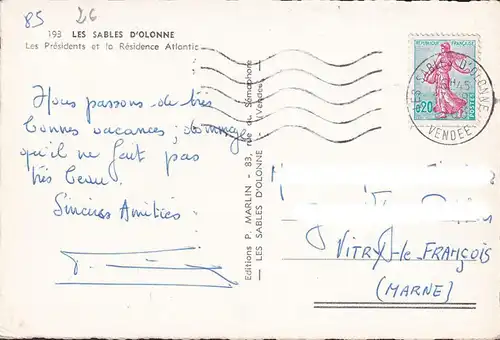 85 26
193 LES SABLES D'OLONNE
Les Présidents et la Résidence Atlantic
Nous passons de très
bonnes vacances, dommage
qu'il ne fait pas
très beau.
Sincères Amitiés.
Editions P. MARLIN - 83, rue du Sémaphore
— LES SABLES D'OLONNE - (Vendée) —
REPUBLIQUE FRANÇAISE
0,20
POSTES
LES SABLES D'OLONNE
VENDEE
VITRY-le-FRANÇOIS
(MARNE)